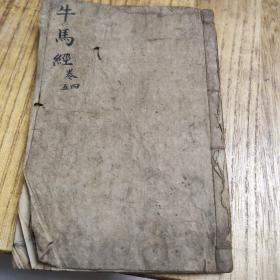 牛馬經
卷四五